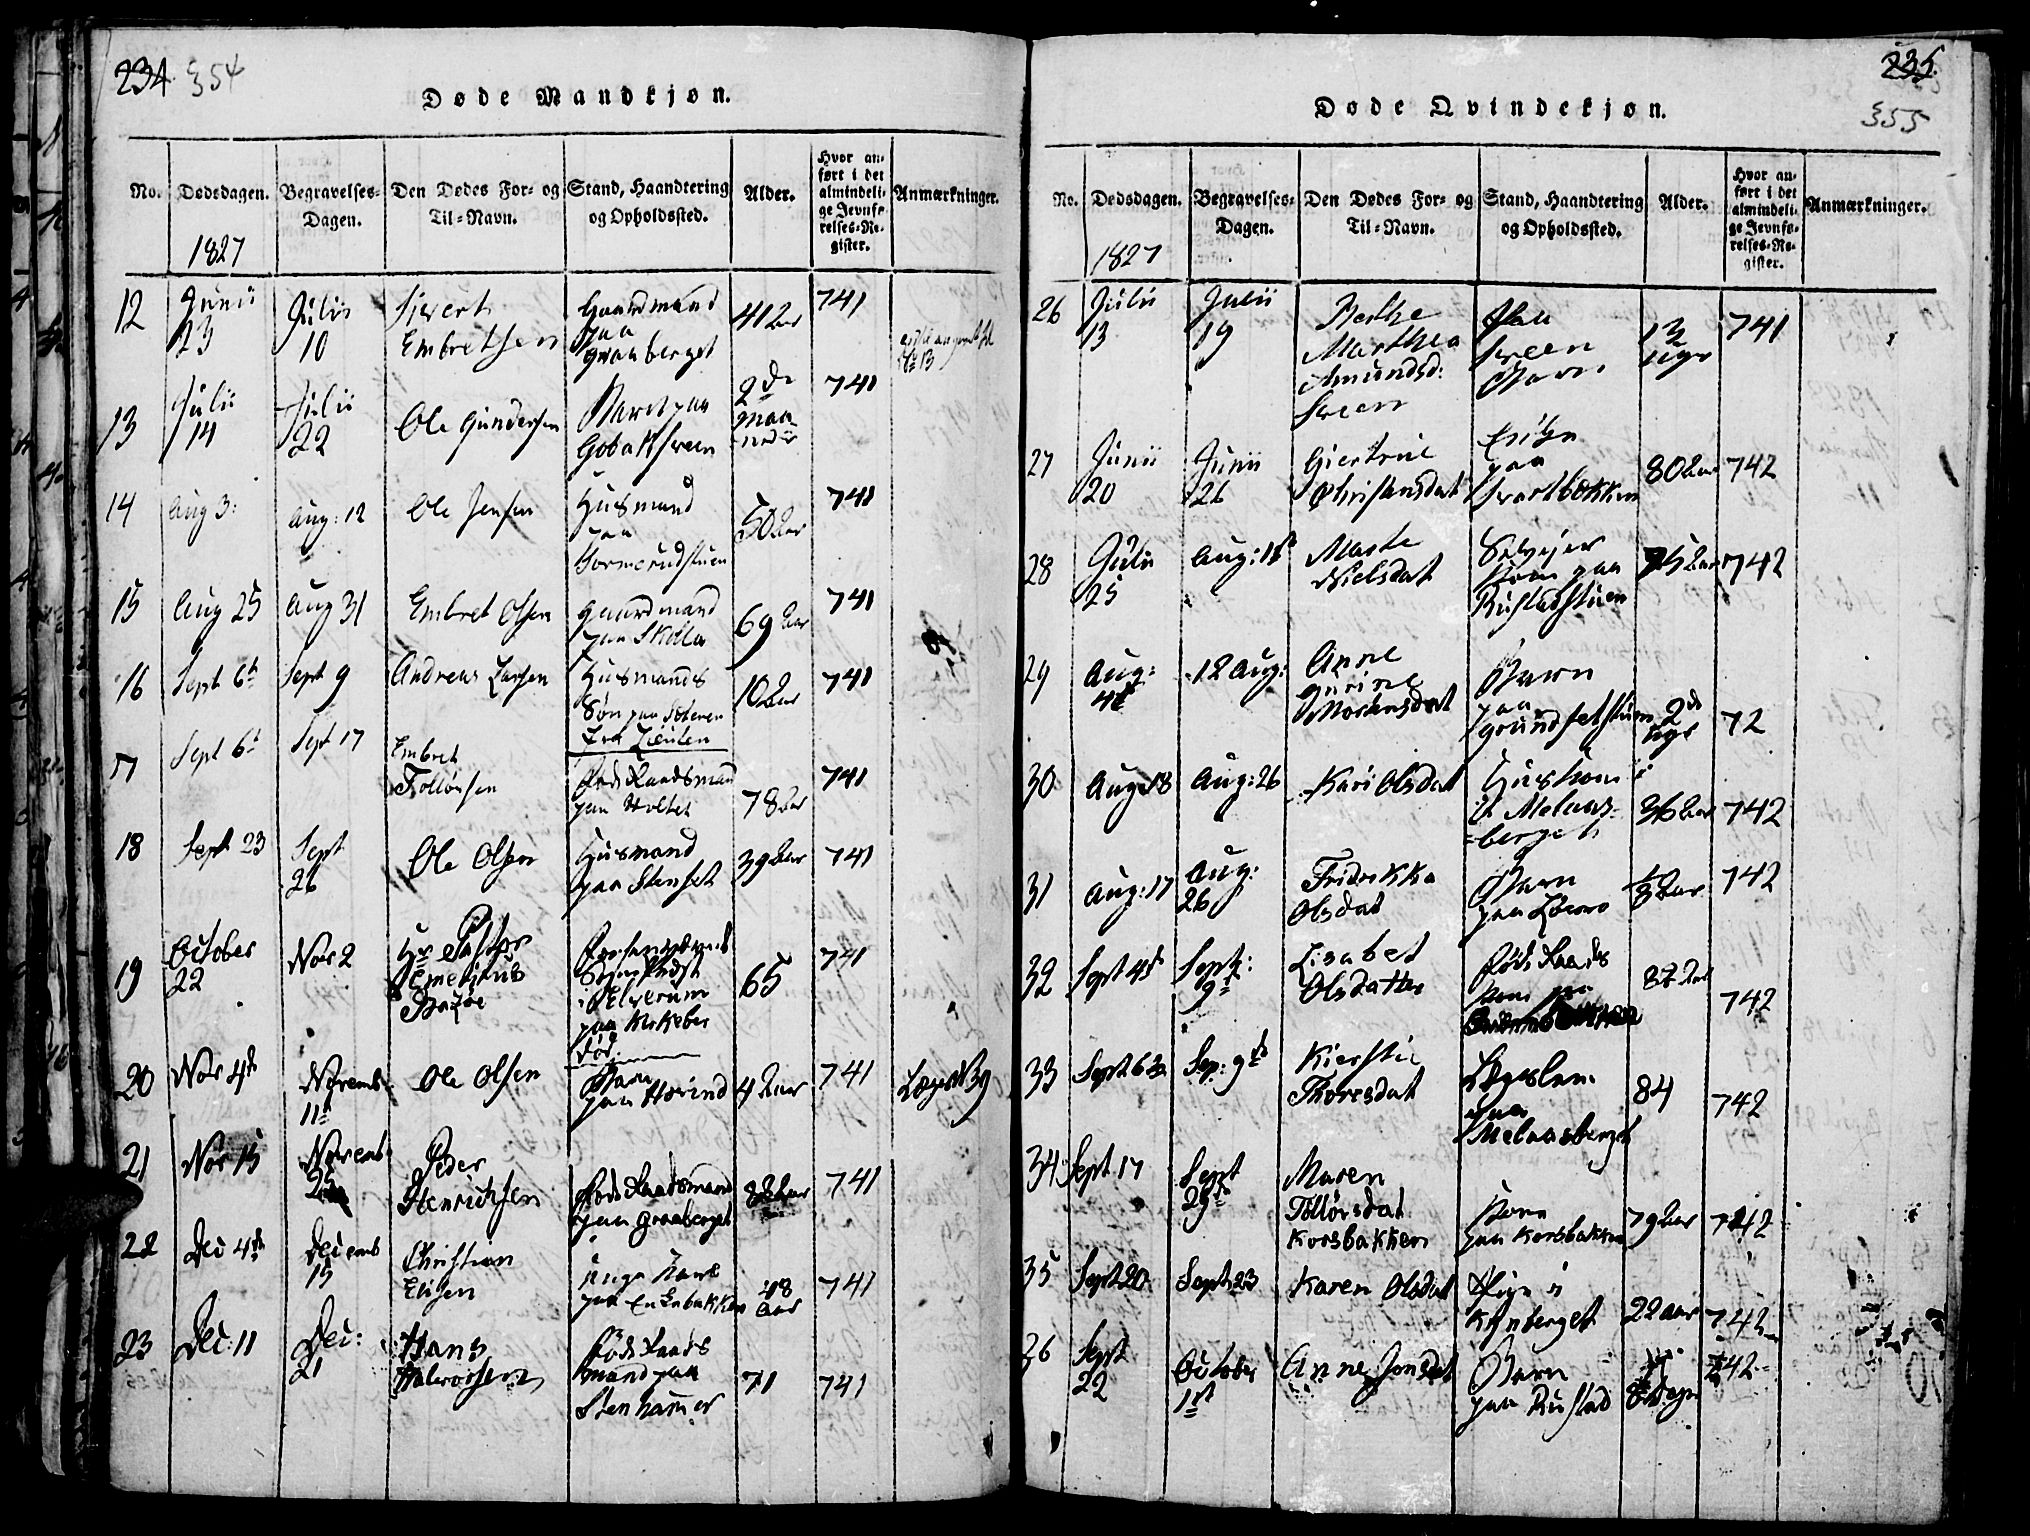 234. 354
Døde Mandkjøn.
No.
Dødsdagen.
1827
Begravelses-
Dagen.
Den Dødes For- og
Til-Navn.
Stand, Haandtering
og Opholdssted.
Alder.
Hvor an-
ført i det
almindeli-
ge Jevnfø-
relses-Re-
gister.
Anmærkninger.
12
Junii
23
Julii
10
Sivert
Embretsen
Gaardmand
paa
Graaberget
41 Aar
741
No 13
13
Julii
14
Julii
22
Ole Gundersen
Barn paa
Gobaksveen
2de
maa-
neder
741
14
Aug 3:
Aug: 12
Ole Jensen
Husmand
paa
Sormerudstuen
50 Aar
741
15
Aug 25
Aug 31
Embret Olsen
Gaardmand
paa Skolla
69 Aar
741
16
Sept 6te
Sept 9
Andreas Larsen
Husmands
Søn paa
10 Aar
741
17
Sept 6t
Sept 17
Embret
Tollørsen
Føds Raadsmand
paa Holtet
78 Aar
741
18
Sept 23
Sept
26
Ole Olsen
Husmand
paa Stenset
39 Aar
741
19
October
22
Nov 2
Hr Pastor
Emeritus
Bazøe
Sognepræst
i Elverum
paa Kirkeber
65
741
20
Nov 4de
Novemb:
11te
Ole Olsen
Barn
paa Hovind
4 Aar
741
Læges No 39
21
Nov 15
Novemb:
25
Peder
Henrichsen
Føds Raadsmand
paa Graaberget
741
22
Dec 4de
Decemb
15
Christian
Elisen
unge Karl
paa
48
Aar
741
23
Dec: 11
Dec:
21
Hans
Halvorsen
Føds Raads
mand paa
Stenhamer
71
741
235.
355
Døde Qvindekjøn.
No.
Dødsdagen.
1827
Begravelses-
Dagen.
Den Dødes For- og
Til-Navn.
Stand, Haandtering
og Opholdssted.
Alder.
Hvor an-
ført i det
almindeli-
ge Jevnfø-
relses-Re-
gister.
Anmærkninger.
26
Julii
13
Julii
19
Marthea
Amundsd:
Sveen
Sveen
Barn
13
uger
741
27
Junii
20
Junii
26
Giertrue
Christensdat
paa
Svartbekken
80 Aar
742
28
Julii
25
Marte
Nielsdat
Selvejer
Kone paa
Rustadstuen
75 Aar
742
29
Aug:
4de
12 Aug:
Anne
Gurine
Mortensdat
Barn
paa
Grundsetstuen
2de
uger
72
30
Aug 18
Aug: 26
Kari Olsdat
Huskone
i Melaas-
berget
36 Aar
742
31
Aug: 17
Aug:
26
Fridrikka
Olsdat
Barn
742
32
Sept 4de
Sept:
9de
Lisabet
Olsdatter
Føds Raads
Kone paa
742
33
Sept 6te
Sep: 9de
Kierstie
Thoresdat
Lægslem
paa
Melaasberget
84
742
34
Sept 17
Sept
29de
Maren
Tollørsdat
Korsbakken
Kone
paa Korsbakken
79 Aar
742
35
Sept 20
Sept 23
Karen Olsdat
Pige i
Kynberget
22 aar
742
26
Sept
22
October
1st
Anne Jonsdat
Barn
paa Rustad
8 Dage
742